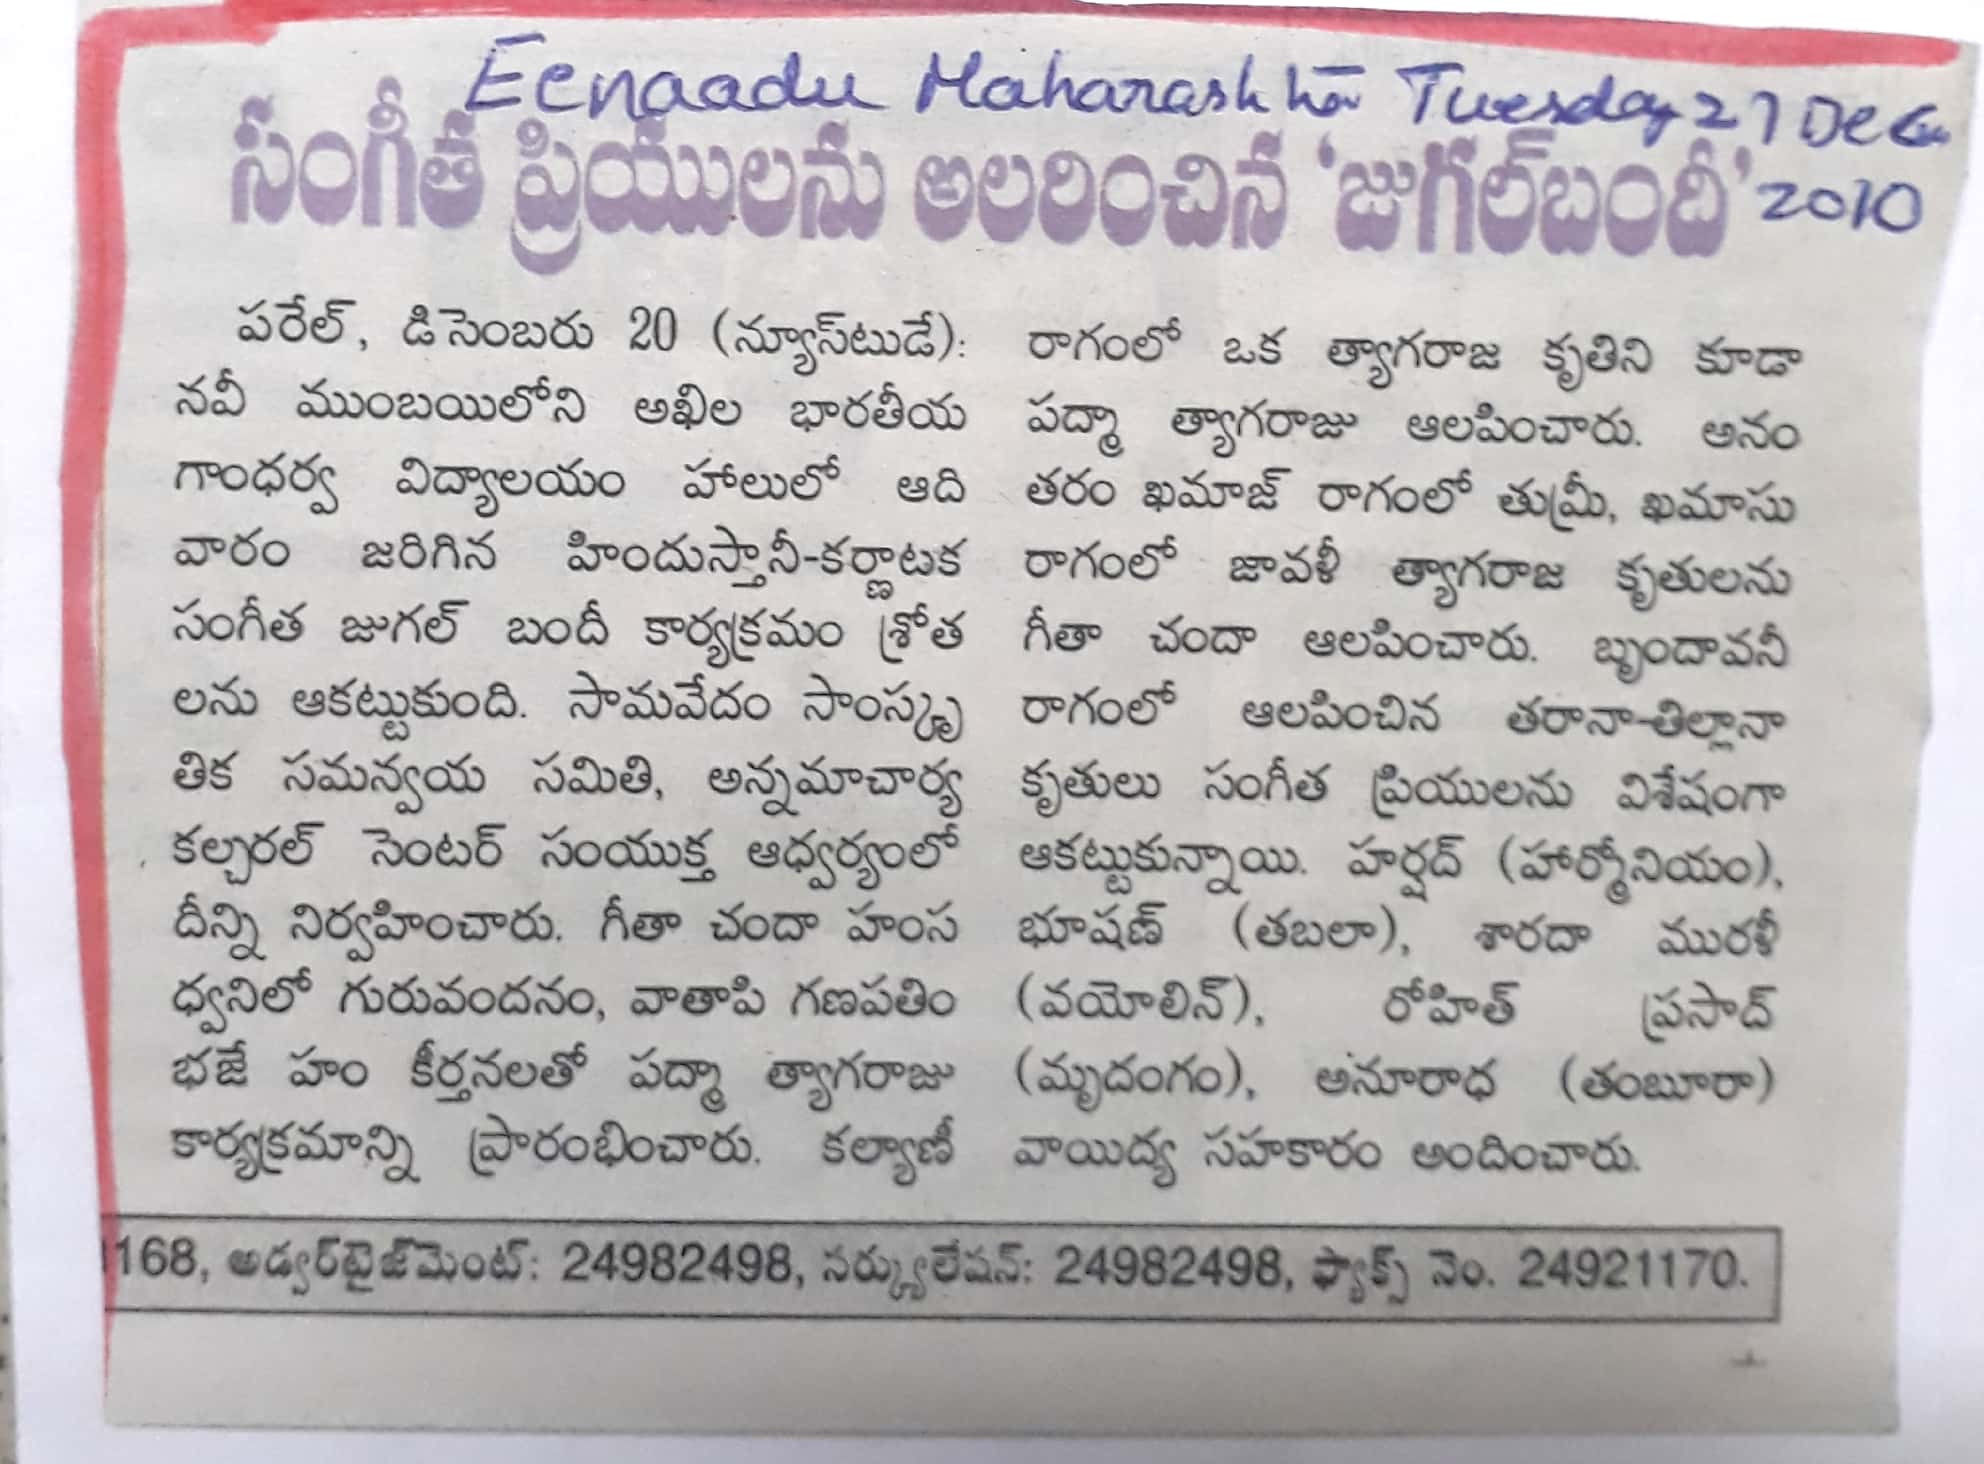 Eenaadu Maharashtra Tuesday 21 Dec
2010
సంగీత ప్రియులను అలరించిన 'జుగల్‌బందీ'
పరేల్, డిసెంబరు 20 (న్యూస్‌టుడే):
నవీ ముంబయిలోని అఖిల భారతీయ
గాంధర్వ విద్యాలయం హాలులో ఆది
వారం జరిగిన హిందుస్తానీ-కర్ణాటక
సంగీత జుగల్ బందీ కార్యక్రమం శ్రోత
లను ఆకట్టుకుంది. సామవేదం సాంస్కృ
తిక సమన్వయ సమితి, అన్నమాచార్య
కల్చరల్ సెంటర్ సంయుక్త ఆధ్వర్యంలో
దీన్ని నిర్వహించారు. గీతా చందా హంస
ధ్వనిలో గురువందనం, వాతాపి గణపతిం
భజే హం కీర్తనలతో పద్మా త్యాగరాజు
కార్యక్రమాన్ని ప్రారంభించారు. కల్యాణీ
రాగంలో ఒక త్యాగరాజ కృతిని కూడా
పద్మా త్యాగరాజు ఆలపించారు. అనం
తరం ఖమాజ్ రాగంలో తుమ్రీ, ఖమాసు
రాగంలో జావళీ త్యాగరాజ కృతులను
గీతా చందా ఆలపించారు. బృందావనీ
రాగంలో ఆలపించిన తరానా-తిల్లానా
కృతులు సంగీత ప్రియులను విశేషంగా
ఆకట్టుకున్నాయి. హర్షద్ (హార్మోనియం),
భూషణ్ (తబలా), శారదా మురళీ
(వయోలిన్), రోహిత్ ప్రసాద్
(మృదంగం), అనూరాధ (తంబూరా)
వాయిద్య సహకారం అందించారు.
168, అడ్వర్‌టైజ్‌మెంట్: 24982498, సర్క్యులేషన్: 24982498, ఫ్యాక్స్ నెం. 24921170.